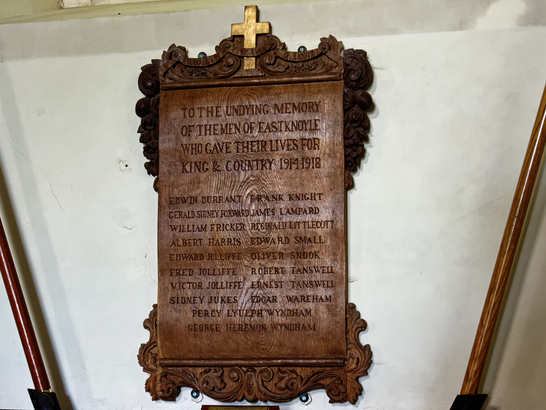 TO THE UNDYING MEMORY
OF THE MEN OF EAST KNOYLE
WHO GAVE THEIR LIVES FOR
KING & COUNTRY 1914-1918
EDWIN DURRANT FRANK KNIGHT
GERALD SIDNEY FOXWARD JAMES LAMPARD
WILLIAM FRICKER REGINALD LITTLECOTT
ALBERT HARRIS EDWARD SMALL
EDWARD JOLLIFFE OLIVER SNOOK
FRED JOLLIFFE ROBERT TANSWELL
VICTOR JOLLIFFE ERNEST TANSWELL
SIDNEY JUKES EDGAR WAREHAM
PERCY LYULPH WYNDHAM
GEORGE HEREMON WYNDHAM